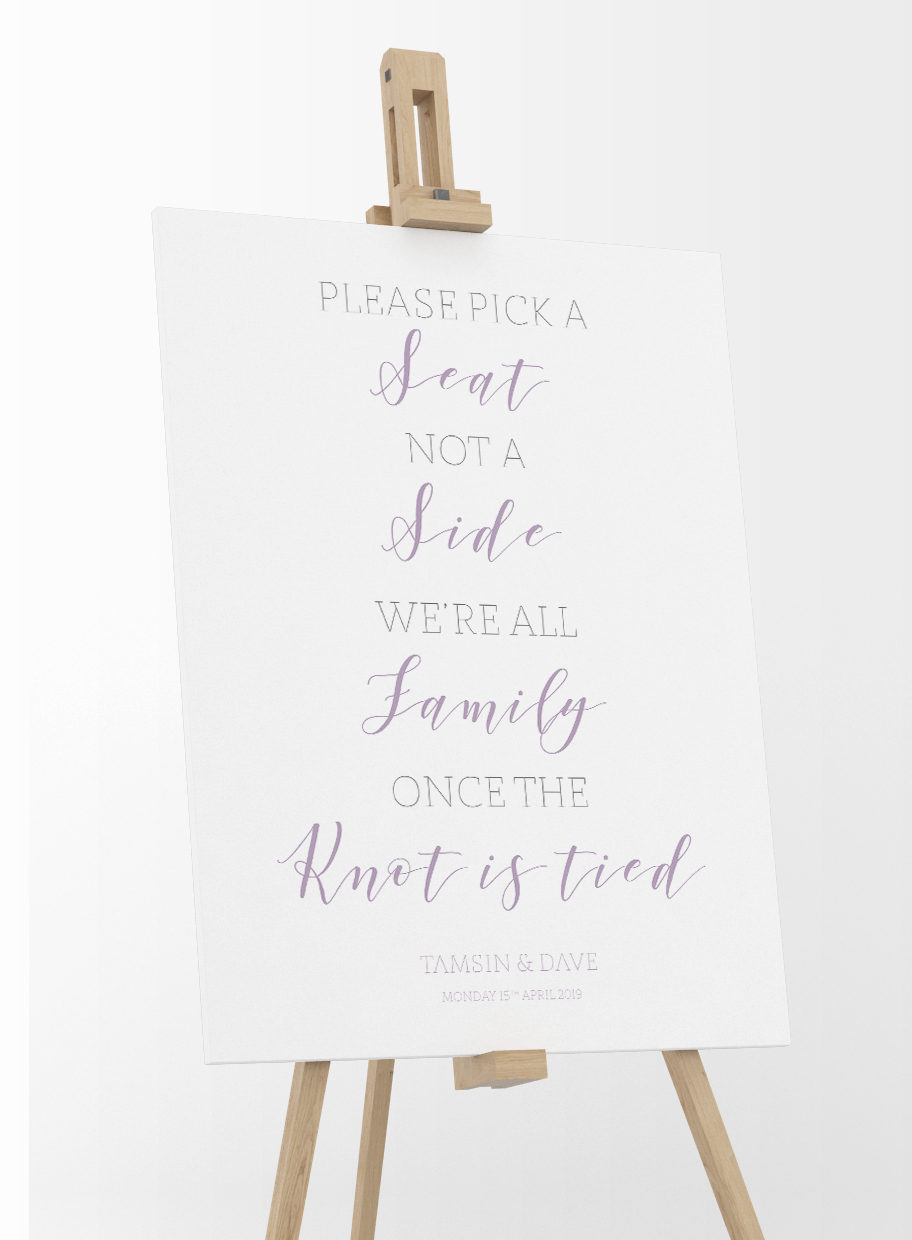 PLEASE PICK A
Seat
NOT A
Side
WE'RE ALL
Family
ONCE THE
Knot is tied
TAMSIN & DAVE
MONDAY 15TH APRIL 2019